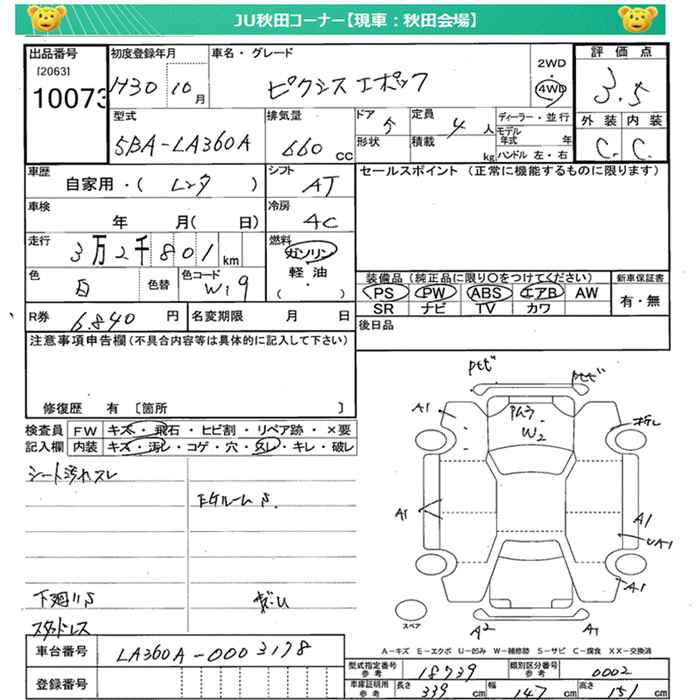 JU秋田コーナー【現車：秋田会場】
出品番号
[2063]
10073
初度登録年月
H30 10月
車名・グレード
ピクシス エポック
2WD
4WD
評価点
3.5
外装 内装
C. C.
型式
5BA-LA360A
排気量
660 cc
ドア
5
形状
定員
4人
積載
kg
ディーラー・並行
モデル年式 年
ハンドル 左・右
車歴
自家用・( レンタ )
シフト
AT
セールスポイント（正常に機能するものに限ります）
車検
年 月( 日)
冷房
4C
走行
3万2千801km
燃料
ガソリン
軽油
( ・ )
色
白
色替
色コード
W19
装備品（純正品に限り○をつけてください）
PS PW ABS エアB AW
SR ナビ TV カワ
新車保証書
有・無
R券
6.840円
名変期限 月 日
後日品
注意事項申告欄(不具合内容等は具体的に記入して下さい)
修復歴 有〔箇所 〕
検査員記入欄
FW キズ・飛石・ヒビ割・リペア跡・×要
内装 キズ・汚レ・コゲ・穴・スレ・キレ・破レ
シート汚れスレ
下廻りS
スタッドレス
A1
W2
A1
A1
A1
A2
A1
スペア
A－キズ E－エクボ U－凹み W－補修跡 S－サビ C－腐食 XX－交換済
車台番号
LA360A-0003178
登録番号
型式指定番号
参考
18739
類別区分番号
参考
0002
車庫証明用
参考
長さ 339cm
幅 147cm
高さ 151cm